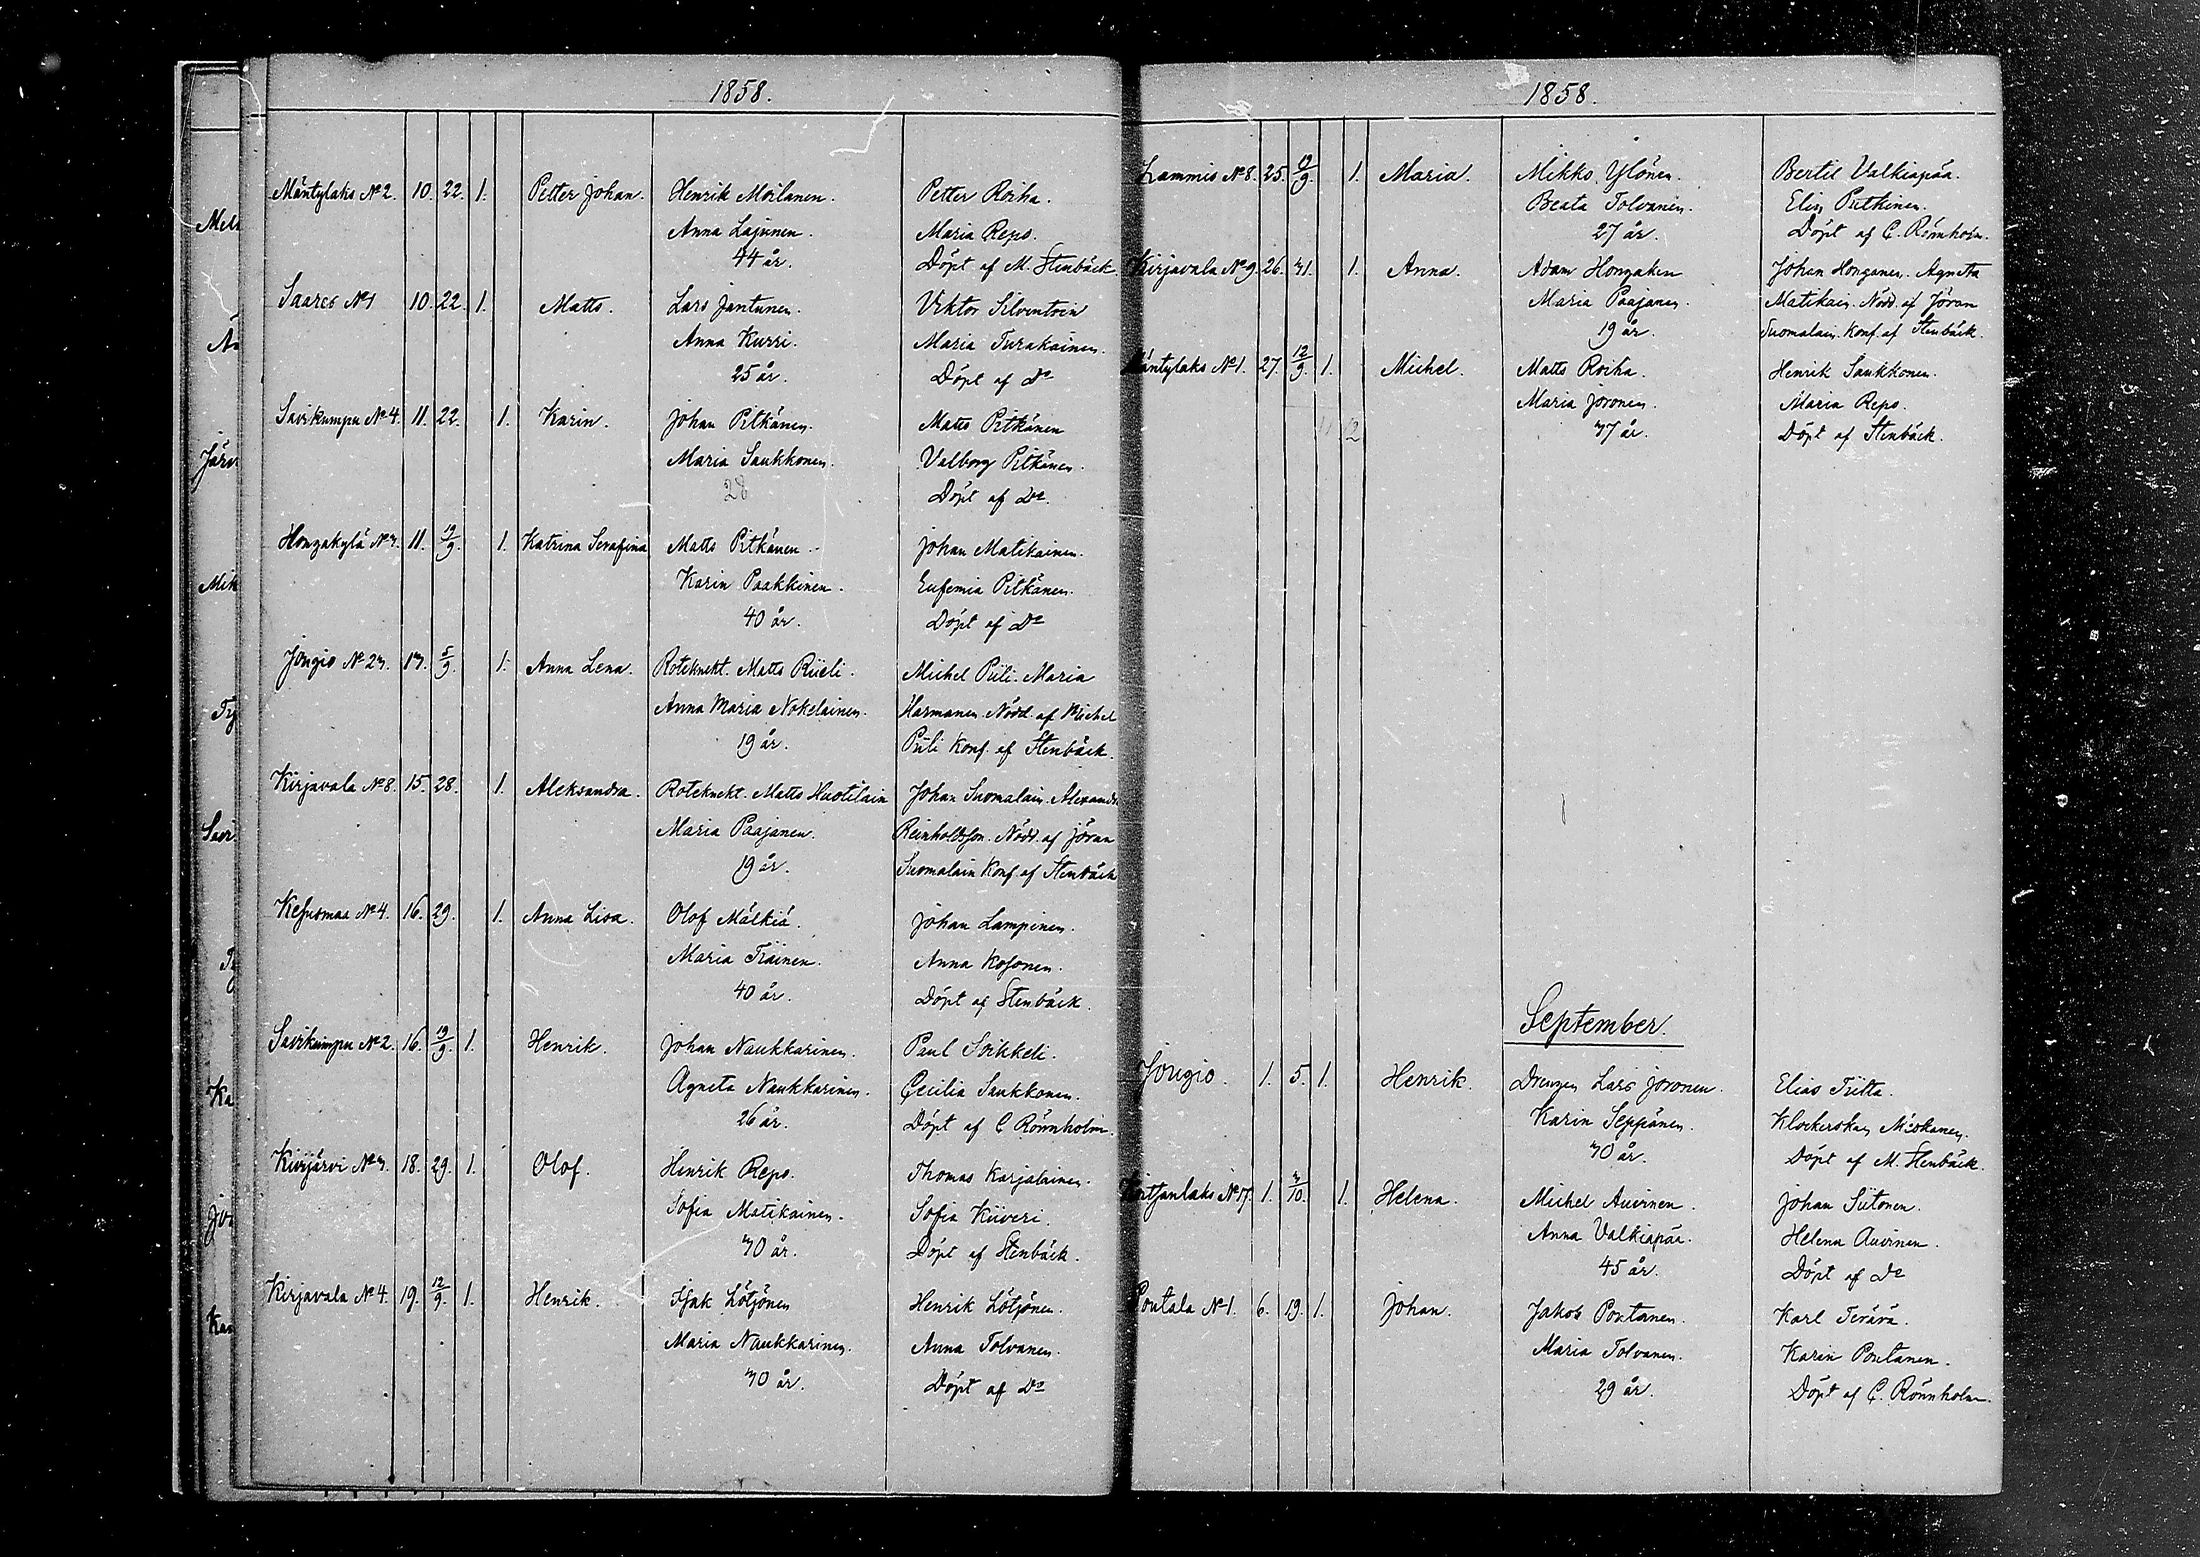 1858.
Mäntylaks No 2. 10. 22. 1. Petter Johan. Henrik Moilanen. Petter Roiha.
Anna Lajunen. Maria Reps.
44 år. Döpt af M. Stenbäck.
Saares No 1 10. 22. 1. Matts. Lars Jantunen. Viktor Silventoin
Anna Kurri. Maria Turakainen.
25 år. Döpt af Do
Savikumpu No 4. 11. 22. 1. Karin. Johan Pitkänen. Matts Pitkänen
Maria Saukkonen. Valborg Pitkänen.
28 Döpt af Do.
Honzakylä No 3. 11. 19/9. 1. Katrina Serafina Matts Pitkänen. Johan Matikainen.
Karin Paakkinen. Eufemia Pitkänen.
40 år. Döpt af Do
Jongio No 23. 13. 5/9. 1. Anna Lena. Roteknekt. Matts Piieli. Michel Piili. Maria
Anna Maria Nokelainen. Harmanen. Nödd. af Michel
19 år. Piili Konf. af Stenbäck.
Kirjavala No 8. 15. 28. 1. Aleksandra. Roteknekt. Matts Huotilain Johan Suomalain. Alexandr
Maria Paajanen. Reinholdsson. Nödd. af Jöran
19 år. Suomalain Konf. af Stenbäck
Kesusmaa No 4. 16. 29. 1. Anna Lisa. Olof Mälkiä. Johan Lampinen.
Maria Träinen. Anna Kosonen.
40 år. Döpt af Stenbäck.
Savikumpu No 2. 16. 19/9. 1. Henrik. Johan Naukkarinen. Paul Soikkeli.
Agneta Naukkarinen. Cecilia Saukkonen.
26 år. Döpt af C Rönnholm.
Kivijärvi No 3. 18. 29. 1. Olof. Henrik Reps. Thomas Karjalainen.
Sofia Matikainen. Sofia Kiiveri.
30 år. Döpt af Stenbäck.
Kirjavala No 4. 19. 12/9. 1. Henrik. Isak Lötjönen Henrik Lötjönen.
Maria Naukkarinen. Anna Tolvanen.
30 år. Döpt af Do
1858.
Lammis No 8. 25. 19/9. 1. Maria. Mikko Ylönen. Bertil Valkiapää.
Beata Tolvanen. Elin Putkinen.
27 år. Döpt af C. Rönnholm.
Kirjavala No 9. 26. 31. 1. Anna. Adam Hongaken Johan Honganen. Agneta
Maria Paajanen. Matikain. Nödd. af Jöran
19 år. Suomalain. Konf. af Stenbäck.
Mäntylaks No 1. 27. 12/9. 1. Michel. Matts Roiha. Henrik Saukkonen.
Maria Joronen. Maria Reps.
37 år. Döpt af Stenbäck.
September.
Jongio. 1. 5. 1. Henrik. Drengen Lars Joronen. Elias Tiitta.
Karin Seppänen. Klockerskan
30 år. Döpt af M. Stenbäck.
No 17. 1. 3/10. 1. Helena. Michel Auvinen. Johan Siitonen.
Anna Valkiapää. Helena Auvinen.
45 år. Döpt af Do
Poutala No 1. 6. 19. 1. Johan. Jakob Poutanen. Karl Terävä.
Maria Tolvanen. Karin Poutanen.
29 år. Döpt af C. Rönnholm.